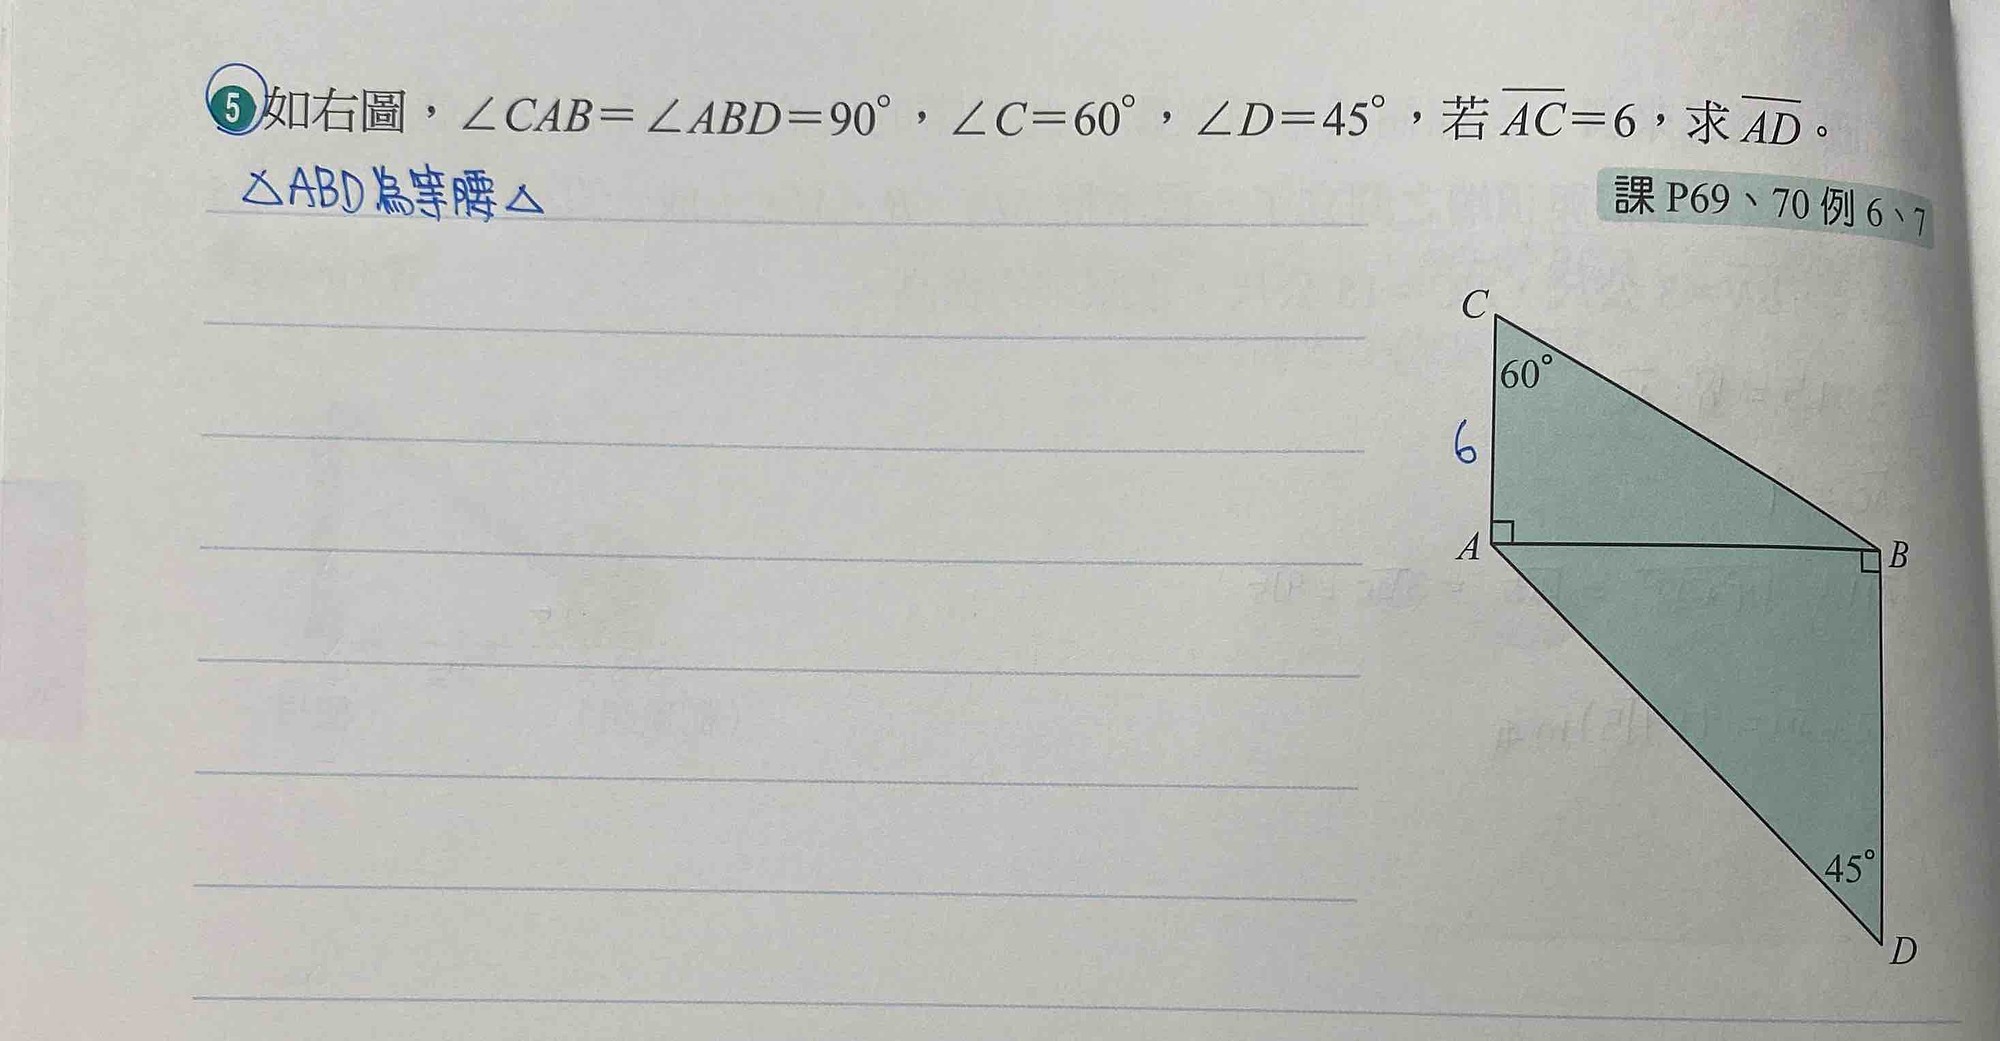 5 如右圖，∠CAB＝∠ABD＝90°，∠C＝60°，∠D＝45°，若 AC＝6，求 AD。
△ABD為等腰△
課 P69、70 例 6、7
C
60°
6
A
B
45°
D